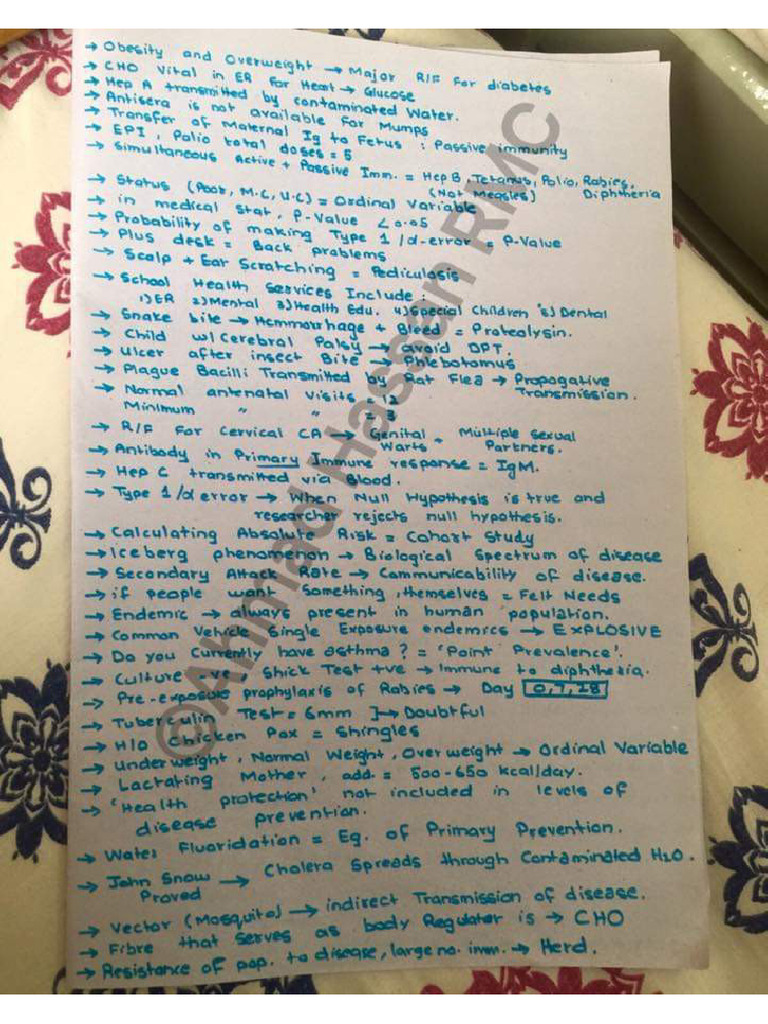 → Obesity and Overweight → Major R/F for diabetes
→ CHO vital in ER for Heart → Glucose
→ Hep A transmitted by contaminated Water.
→ Antisera is not available for Mumps
→ Transfer of Maternal Ig to Fetus : Passive immunity
→ EPI, Polio total doses = 5
→ Simultaneous Active + Passive Imm. = Hep B, Tetanus, Polio, Rabies,
(Not Measles) Diphtheria
→ Status (Poor, M.C, U.C) = Ordinal Variable
→ in medical stat, P-Value < 0.05
→ Probability of making Type 1/α-error = P-Value
→ Plus desk = Back problems
→ Scalp + Ear Scratching = Pediculosis
→ School Health Services Include :
1) ER 2) Mental 3) Health Edu. 4) Special Children 5) Dental
→ Snake bite → Hemmorrhage + Bleed = Proteolysin.
→ Child w/ Cerebral Palsy → avoid DPT.
→ Ulcer after insect Bite → Phlebotomus
→ Plague Bacilli Transmitted by Rat Flea → Propogative
Transmission.
→ Normal antenatal visits = 12
Minimum " " = 3
→ R/F for Cervical CA → Genital Warts, Multiple Sexual Partners.
→ Antibody in Primary Immune response = IgM.
→ Hep C transmitted via Blood.
→ Type 1/α error → When Null Hypothesis is true and
researcher rejects null hypothesis.
→ Calculating Absolute Risk = Cohort Study
→ Iceberg phenomenon → Biological Spectrum of disease
→ Secondary Attack Rate → Communicability of disease.
→ if people want something, themselves = Felt Needs
→ Endemic → always present in human population.
→ Common Vehicle Single Exposure endemics → EXPLOSIVE
→ Do you currently have asthma? = 'Point Prevalence'.
→ Culture -ve, Shick Test +ve → Immune to diphtheria.
→ Pre-exposure prophylaxis of Rabies → Day 0,7,28
→ Tuberculin Test = 6mm ] → Doubtful
→ H/O Chicken Pox = Shingles
→ Underweight, Normal Weight, Overweight → Ordinal Variable
→ Lactrating Mother, add. = 500-650 kcal/day.
→ 'Health protection' not included in levels of
disease prevention.
→ Water Fluoridation = Eg. of Primary Prevention.
→ John Snow Proved → Cholera Spreads through Contaminated H2O.
→ Vector (Mosquito) → indirect Transmission of disease.
→ Fibre that serves as body Regulater is → CHO
→ Resistance of pop. to disease, large no. imm. → Herd.
©Ahmad Hassan RMC